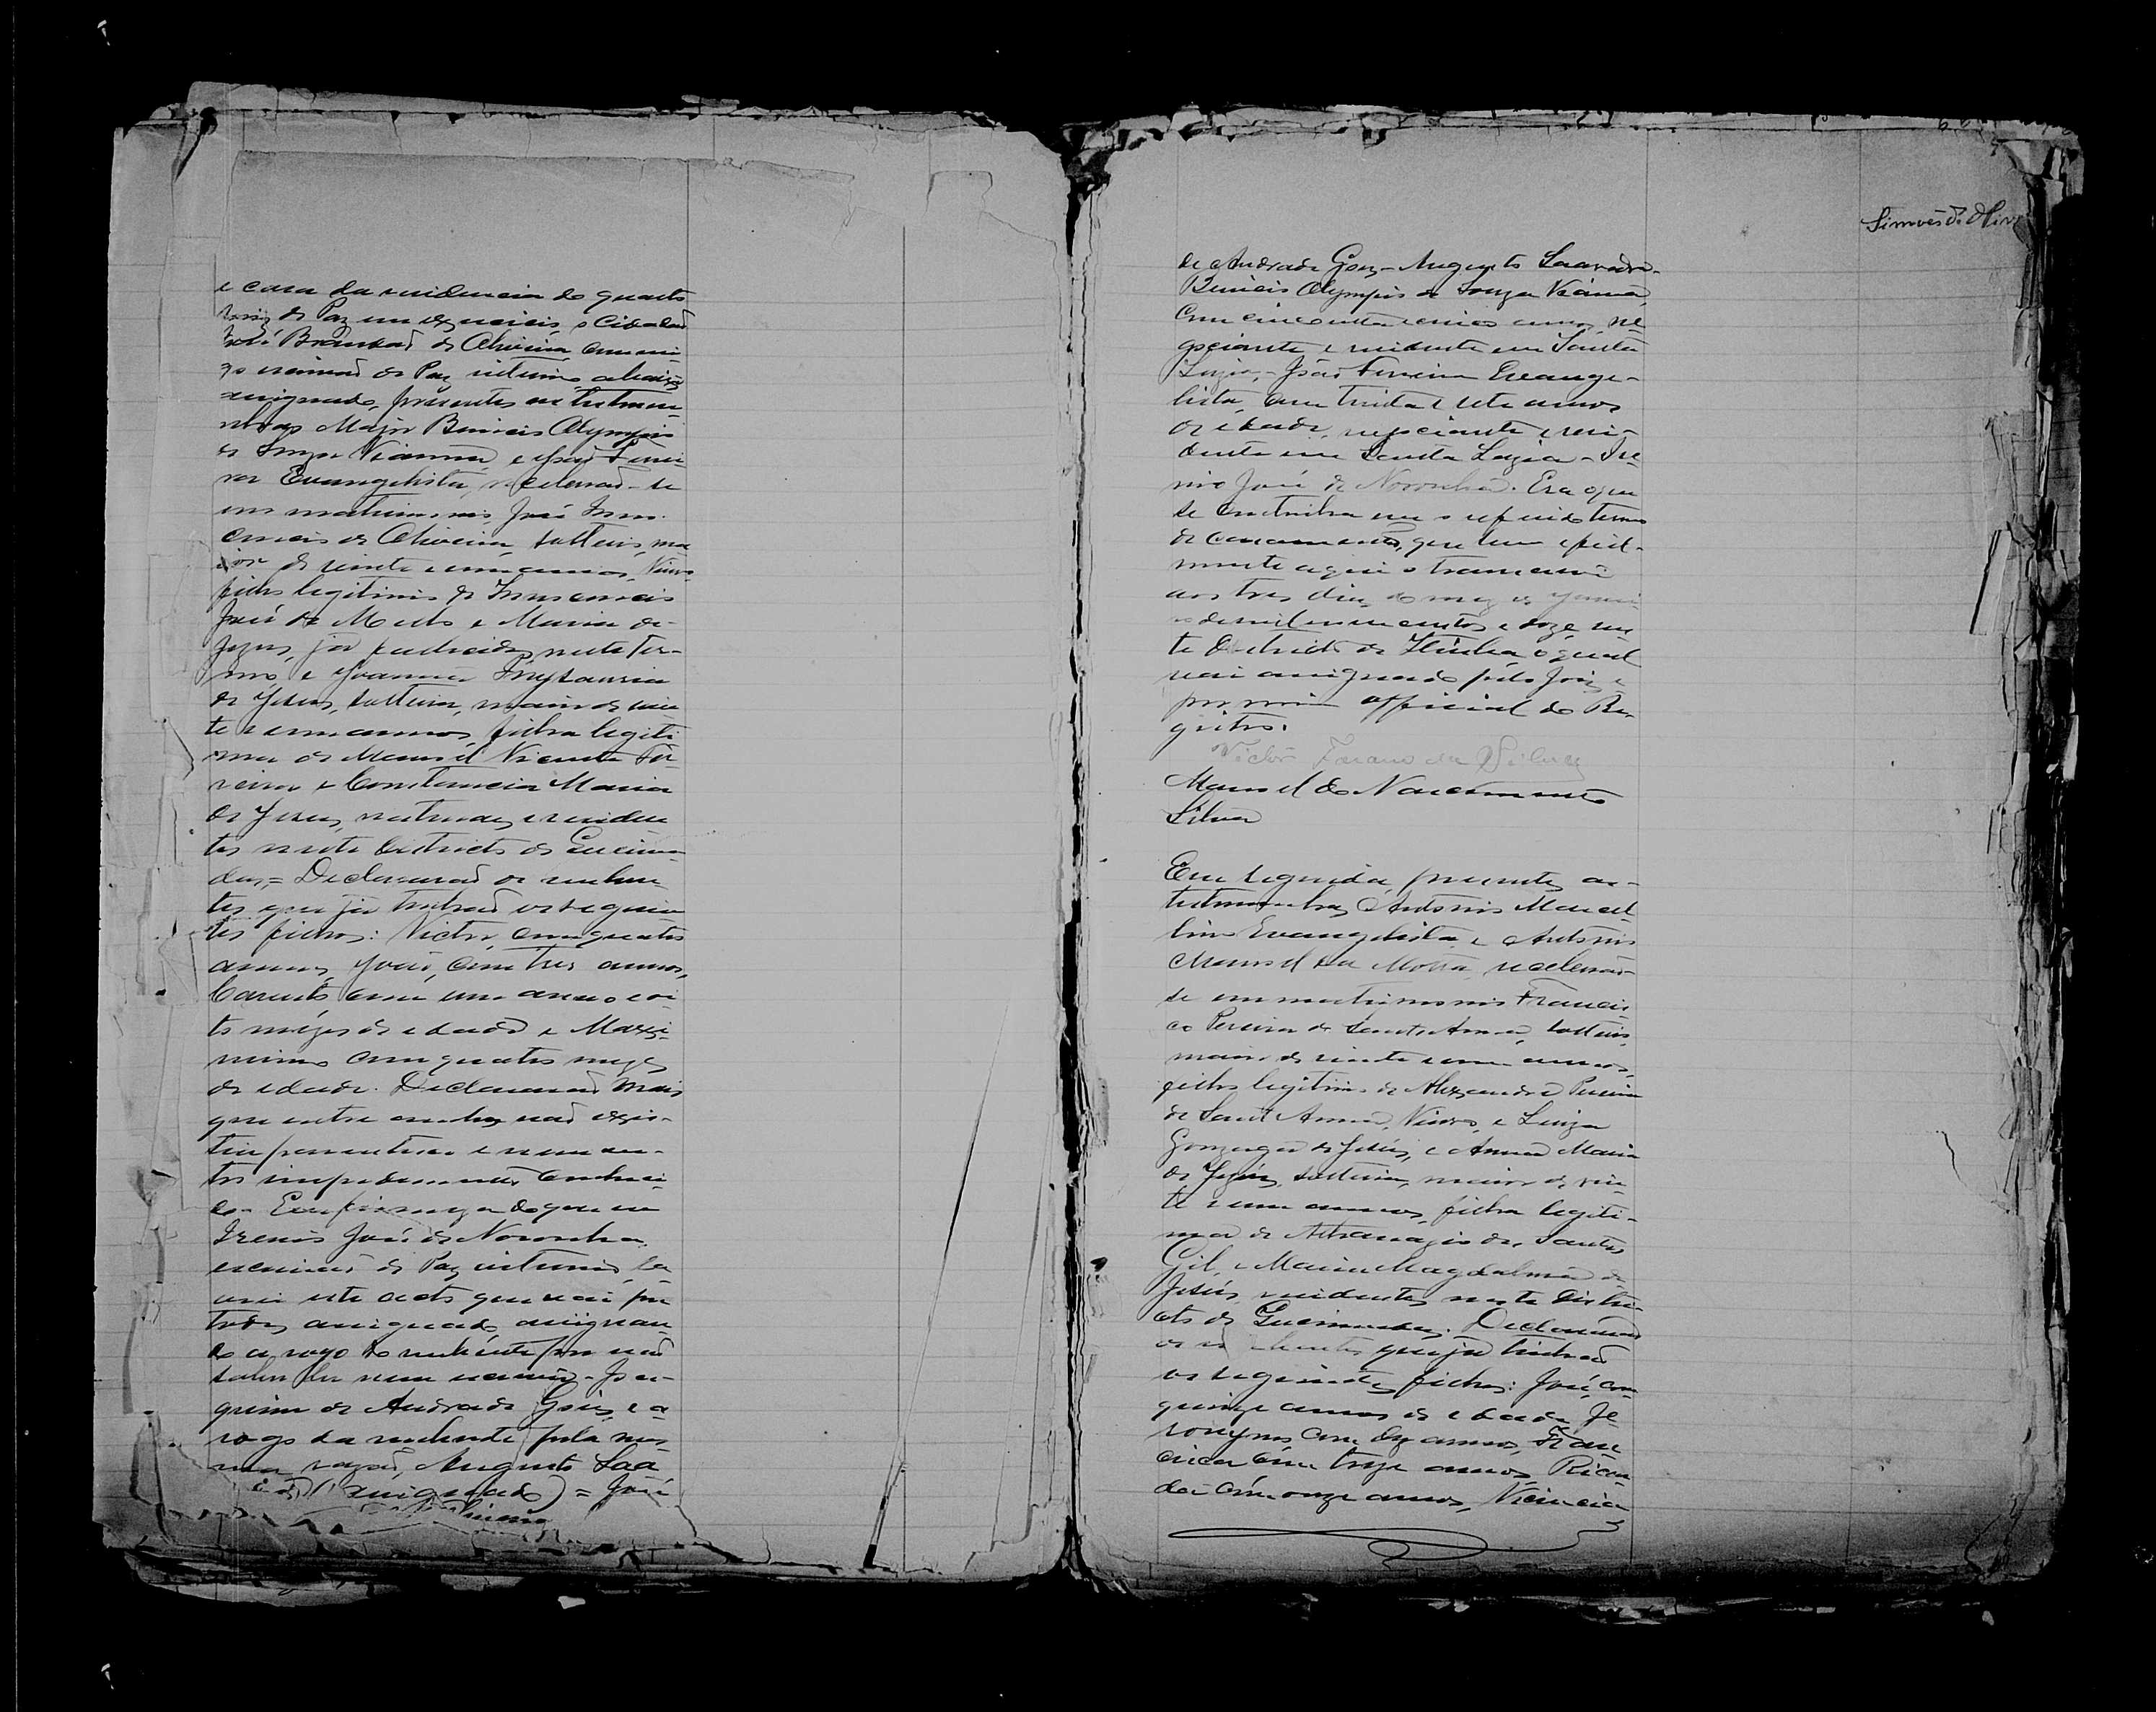 e casa da residencia do quarto
Juiz de Paz em exercicio, o Cidadão
José Brandaõ de Oliveira, commi-
go escrivaõ de Paz interino abaixo
assignado, presentes as testemu-
nhas Major Benicio Olympio
de Souza Vianna, e João Ferrei-
ra Evangelista, receberaõ-se
em matrimonio, José Inno-
cencio de Oliveira, solteiro, ma
ior de vinte e um annos,
filho legitimo de Innocencio
José de Mello e Maria de
Jezus, já fallecidos neste ter-
mo, e Joanna
de Jesus, solteira, maior de vin
te e um annos, filha legiti
ma de Manoel Vicente Fer-
reira e Constancia Maria
de Jesus, naturaes e residen
tes neste Districto de Queima-
das,= Declararaõ os nuben-
tes que já tinhaõ os seguin
tes filhos: Victor, com quatro
annos, João, com tres annos,
com um anno e oi-
to mezes de edade e Maxi-
miano com quatro mezes
de edade. Declararaõ mais
que entre ambos naõ exis-
tia parentesco e nem ou-
tro impedimento conheci-
do. Em firmeza do que eu
Irenio José de Noronha,
escrivaõ de Paz interino, la-
vrei este acto que vai por
todos assignado, assignan-
do a rogo do nubente por naõ
saber ler nem escrever- Joa-
quim de Andrade Goes, e a
rogo da nubente pela mes-
ma razaõ, Augusto Saa
(assignado) = José

Simoes de Olive
de Andrade Goes,- Augusto Saavedra-
Benicio Olympio de Souza Vianna
com cincoenta e cinco annos, ne
gociante e residente em Santa
Luzia,- João Ferreira Evange-
lista, com trinta e sete annos
de edade, negociante e resi-
dente em Santa Luzia - Ire-
nio José de Noronha. Era o que
se continha em o referido termo
de casamento, que bem e fiel-
mente aqui o transcrevi
aos tres dias do mez de Janei-
ro de mil novecentos e doze, nes
te Districto de Itiuba, o qual
vai assignado pelo Juiz e
por mim official do Re-
gistro.
Victor da Silva
Manoel do Nascimento
Silva
Em seguida, presentes as-
testemunhas, Antonio Marcel-
lino Evangelista, e Antonio
Manoel da Motta, receberaõ-
se em matrimonio Francis
co Pereira de Sant'Anna, solteiro,
maior de vinte e um annos,
filho legitimo de Alexandre Pereira
de Sant'Anna, e Luiza
Gonzaga de Jesús, e Anna Maria
de Jesús, solteira, maior de vin-
te e um annos, filha legiti-
ma de Athanazio dos Santos
Gil, e Maria Magdalena de
Jesús, residentes neste Distri-
cto de Queimadas. Declararaõ
os nubentes que já tinhaõ
os seguintes filhos: José, com
quinze annos de edade, Je
ronymo com dez annos, Fran
cisca com treze annos, Ricar
da com onze annos, Vicencia